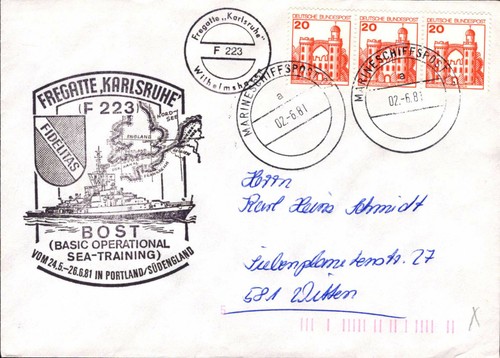 Fregatte "Karlsruhe"
F 223
Wilhelmshaven
DEUTSCHE BUNDESPOST
20
DEUTSCHE BUNDESPOST
20
DEUTSCHE BUNDESPOST
20
MARINESCHIFFSPOST
a
02.-6.81
MARINESCHIFFSPOST
a
02.-6.81
FREGATTE „KARLSRUHE"
(F 223)
NORD-
SEE
ENGLAND
FIDELITAS
BOST
(BASIC OPERATIONAL
SEA-TRAINING)
VOM 24.5.-26.6.81 IN PORTLAND/SÜDENGLAND
Herrn
Karl Heinz Schmidt
Siebenplanetenstr. 27
581 Witten